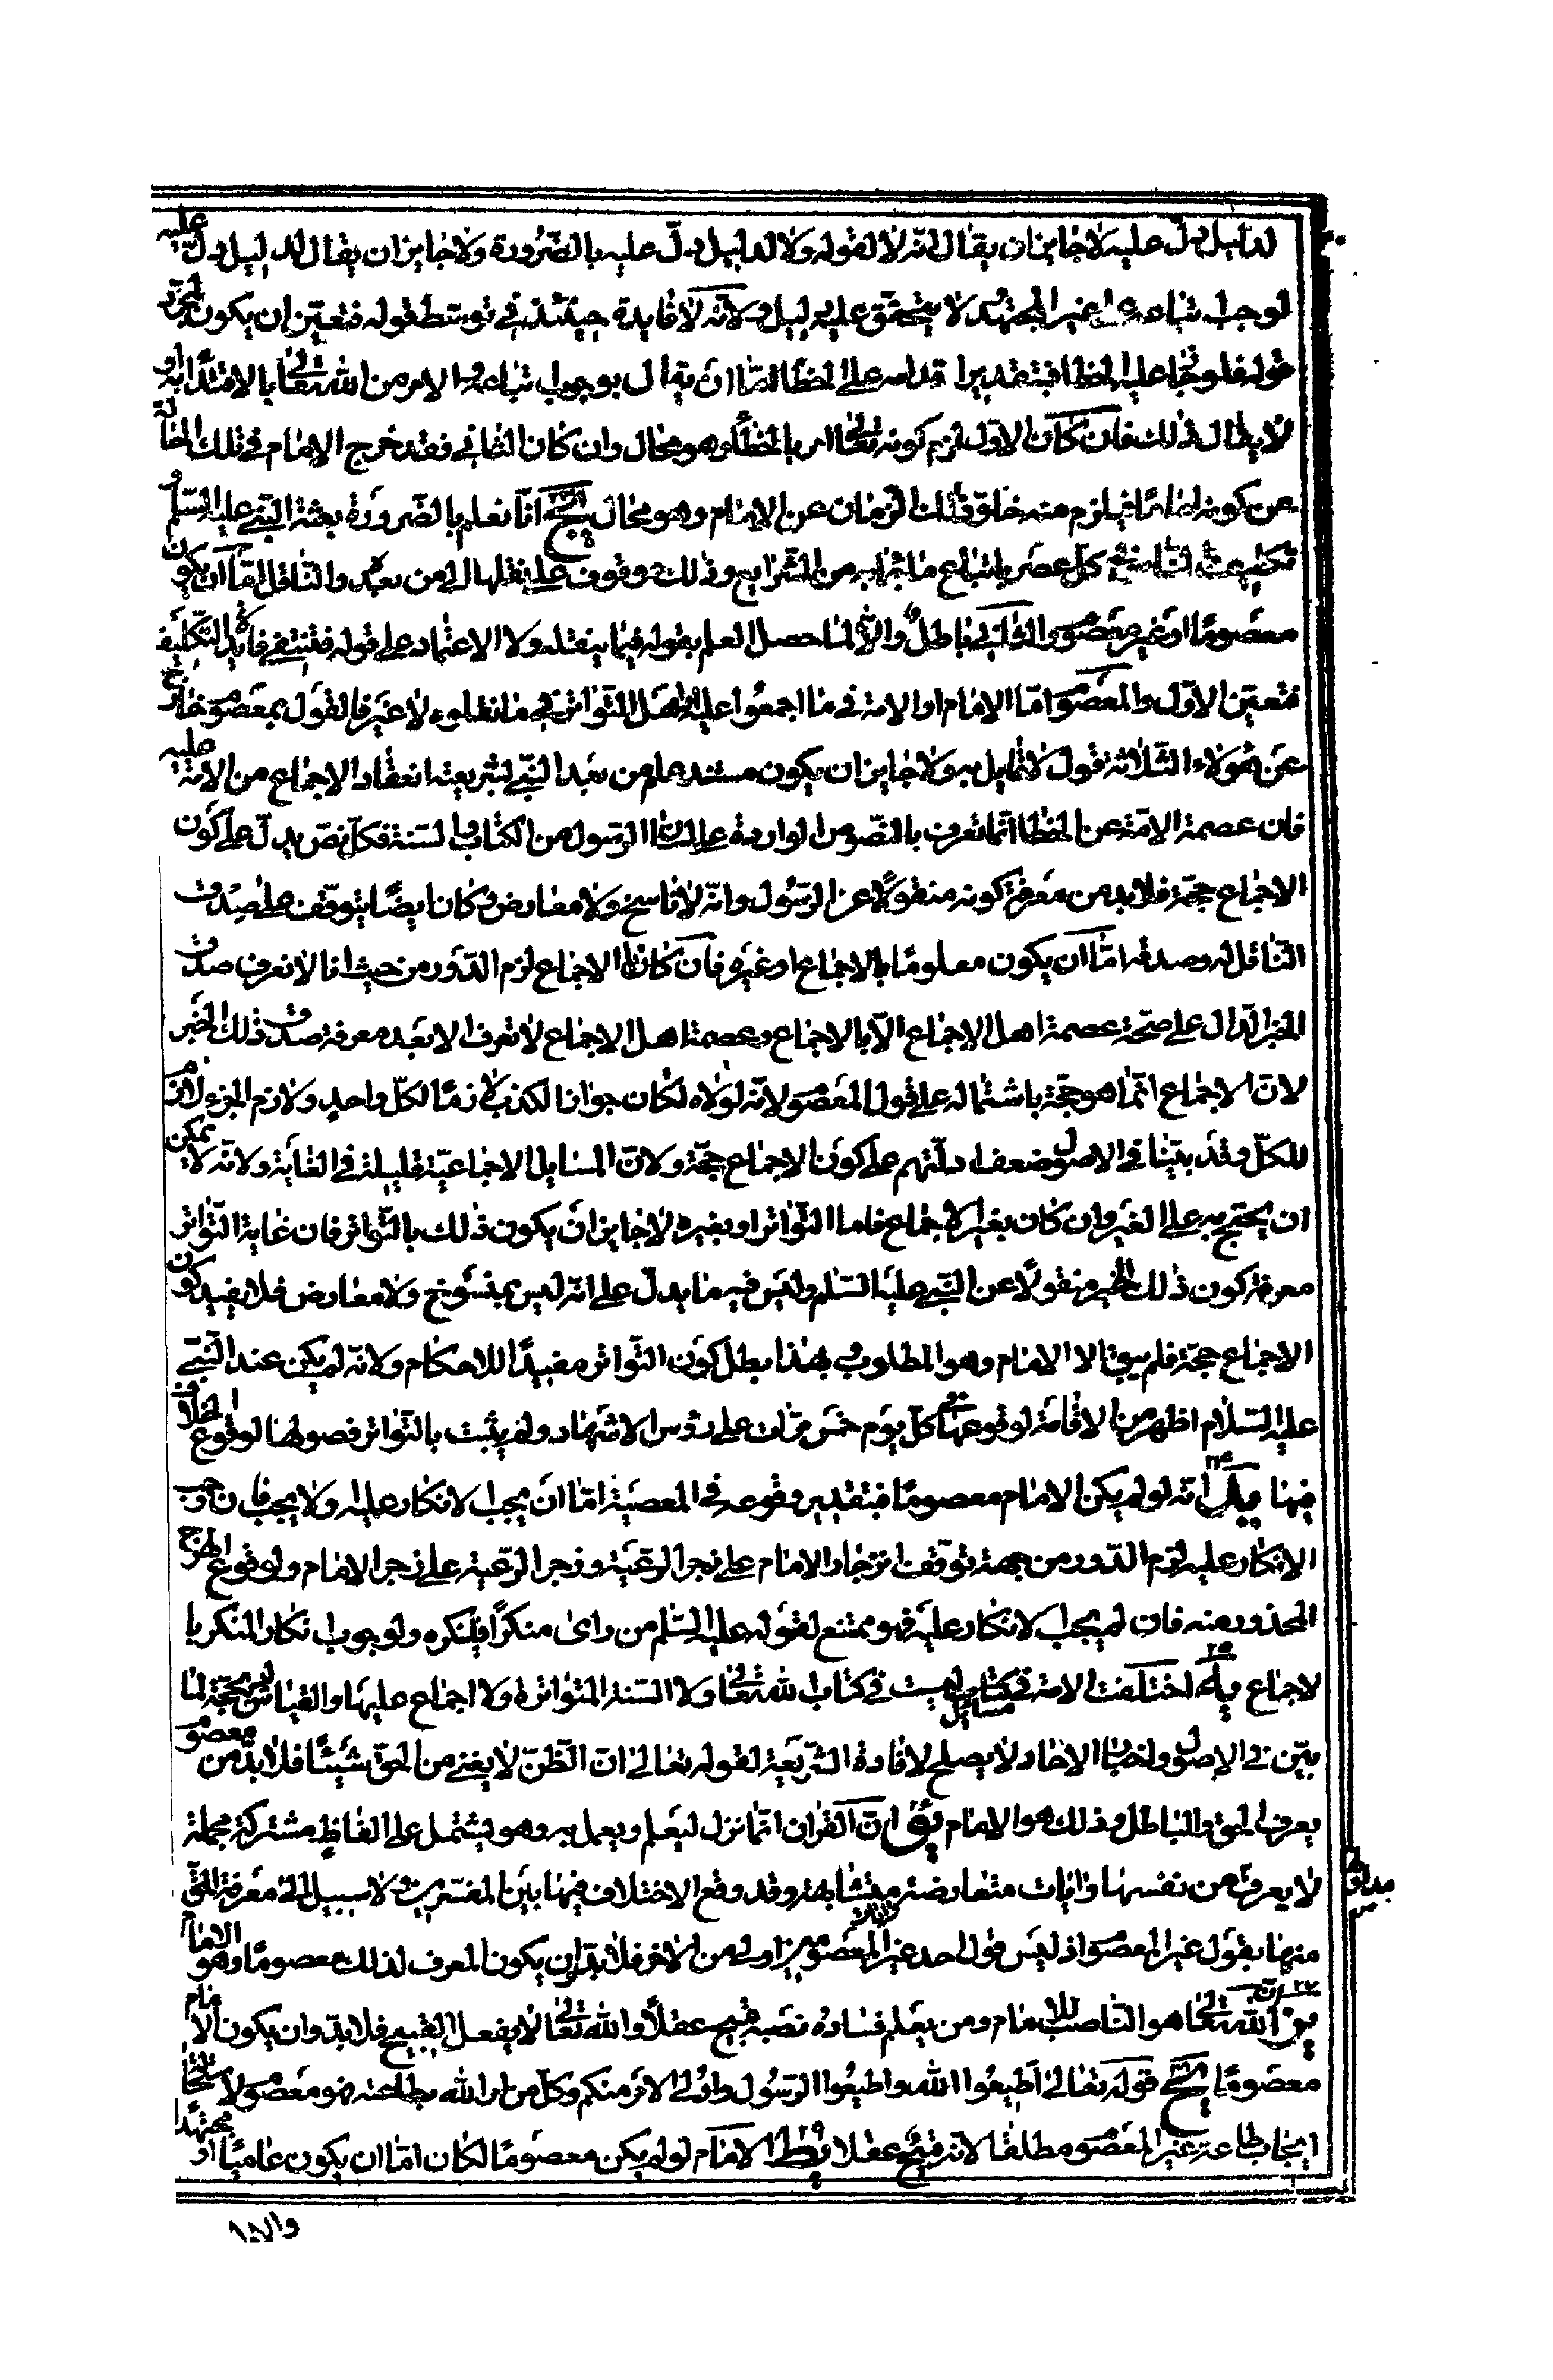 لدليل دلّ عليه لا جايز ان يقال انّه لا لقوله ولا لدليل دلّ عليه بالضّرورة ولا جايز ان يقال لدليل دلّ عليه
لوجب اتباعه غير المجتهد لا يتحقق عليه دليل ولانّه لا فايدة حينئذ في توسّط قوله فتعيّن ان يكون لمجرّد
قوله فلو جاز عليه الخطا فبتقدير اقدامه على الخطأ امّا ان يقال بوجوب اتباعه والامر من الله تعالى بالاقتداء به او
لا يقال ذلك فان كان الاوّل لزم كونه تعالى امر بالخطأ وهو محال وان كان الثاني فقد خرج الامام في تلك الحالة
عن كونه اماما فيلزم منه خلوّ ذلك الزمان عن الامام وهو محال انّا نعلم بالضّرورة بعثة النّبي عليه السّلم
تكليف النّاس في كلّ عصر باتباع ما اتى به من الشّرايع وذلك موقوف على نقلها الى من بعده والنّاقل امّا ان يكون
معصومًا او غير معصوم والثّاني باطل والّا لما حصل العلم بقوله فيما ينقله ولا الاعتماد على قوله فتنتفي فائدة التّكليف
فتعيّن الاوّل والمعصوم امّا الامام او الامة في ما اجمعوا عليه او اهل التّواتر في ما نقلوه لا غير فالقول بمعصوم خارج
عن هؤلاء الثّلاثة قول لا قايل به ولا جايز ان يكون مستند علم من بعد النّبي لشريعته انعقاد الاجماع من الامّة عليه
فان عصمة الامّة عن الخطا انّما تعرف بالنّصوص الواردة على لسان الرّسول من الكتاب والسّنة فكلّ نصّ يدلّ على كون
الاجماع حجّة فلا بد من معرفة كونه منقولًا عن الرّسول وانّه لا ناسخ ولا معارض وكان ايضًا يتوقّف على صدق
النّاقل له وصدقه امّا ان يكون معلومًا بالاجماع او غيره فان كان الاجماع لزم الدّور من حيث انا لا نعرف صدق
الخبر الدّال على صحّة عصمة اهل الاجماع الّا بالاجماع وعصمة اهل الاجماع لا تعرف الا بعد معرفة صدق ذلك الخبر
لانّ الاجماع انّما هو حجّة باشتماله على قول المعصوم لانّه لولاه لكان جواز الكذب لازمًا لكلّ واحدٍ ولازم الجزء لازم
للكلّ وقد بيّنا في الاصول ضعف ادلّتهم على كون الاجماع حجّة ولانّ المسايل الاجماعيّة قليلة في الغاية ولانّه لا يمكن
ان يحتج به على الغير وان كان بغير الاجماع فاما التّواتر او بغيره لا جايز ان يكون ذلك بالتّواتر فان غاية التّواتر
معرفة كون ذلك الخبر منقولًا عن النّبي عليه السّلم وليس فيه ما يدلّ على انّه ليس بمنسوخ ولا معارض فلا يفيد كون
الاجماع حجّة فلم يبق الا الامام وهو المطلوب وبهذا بطل كون التّواتر مفيدًا للاحكام ولانّه لم يكن عند النّبي
عليه السّلام اظهر من الاقامة لوقوعها كلّ يوم خمس مرّات على رؤس الاشهاد ولم يثبت بالتّواتر فصولها لوقوع الخلاف
فيها انّه لو لم يكن الامام معصومًا فبتقدير وقوعه في المعصية امّا ان يجب الانكار عليه ولا يجب فان وجب
الانكار عليه لزم الدّور من جهة توقّف انزجار الامام على زجر الرعيّة وزجر الرّعيّة على زجر الامام ولوقوع الهرج
المحذور منه فان لم يجب الانكار عليه فهو ممتنع لقوله عليه السّلم من راى منكرًا فلينكره ولوجوب انكار المنكر با
لاجماع اختلفت الامة في مسائل ليست في كتاب الله تعالى ولا السّنة المتواترة ولا اجماع عليها والقياس ليس بحجّة لما
بيّن في الاصول واخبار الاحاد لا يصلح لافادة الشّريعة لقوله تعالى انّ الظّنّ لا يغني من الحقّ شيئًا فلا بدّ من معصوم
يعرف الحق والباطل وذلك هو الامام انّ القران انّما نزل ليعلم ويعمل به وهو يشتمل على الفاظٍ مشتركة مجملة
لا يعرف من نفسها وايات متعارضة متشابهة وقد وقع الاختلاف فيها بين المفسّرين ولا سبيل الى معرفة الحقّ
منها بقول غير المعصوم اذ ليس قول احد غير المعصوم اولى من الاخر فلا بدّ ان يكون المعرف لذلك معصومًا وهو الامام
انّ الله تعالى هو النّاصب للامام ومن يعلم فساده نصبه قبيح عقلًا والله تعالى لا يفعل القبيح فلا بدّ وان يكون الامام
معصومًا قوله تعالى اطيعوا الله واطيعوا الرّسول واولى الامر منكم وكلّ من امر الله بطاعته فهو معصوم لاستحالة
ايجاب طاعة غير المعصوم مطلقا لانّه قبيح عقلا الامام لو لم يكن معصومًا لكان امّا ان يكون عاميًّا او مجتهدًا